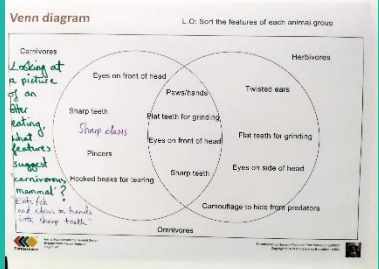 Venn diagram
L.O: Sort the features of each animal group
Carnivores
Herbivores
Looking at
a picture
of an
otter
eating,
what
features
suggest
'carnivorous
mammal'?
"Eats fish
and claws on hands
with sharp teeth"
Eyes on front of head
Sharp teeth
Sharp claws
Pincers
Hooked beaks for tearing
Paws/hands
Flat teeth for grinding
Eyes on front of head
Sharp teeth
Twisted ears
Flat teeth for grinding
Eyes on side of head
Camouflage to hide from predators
Omnivores